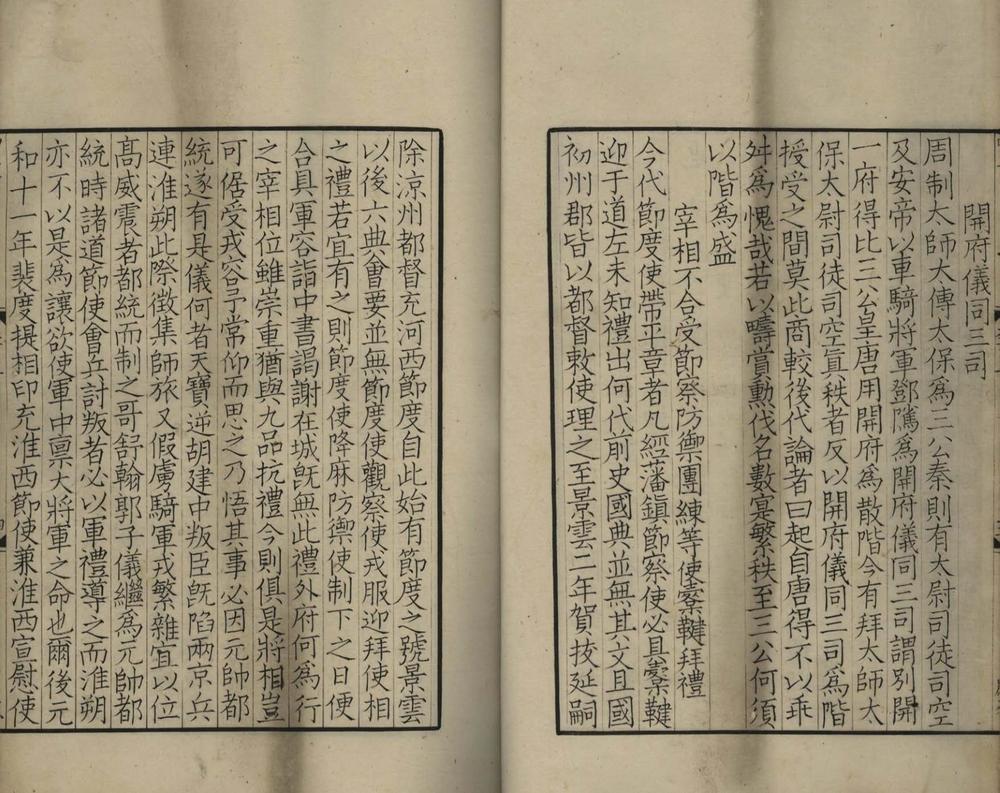 開府儀同三司
周制太師太傅太保爲三公秦則有太尉司徒司空
及安帝以車騎將軍鄧騭爲開府儀同三司謂別開
一府得比三公皇唐用開府爲散階今有拜太師太
保太尉司徒司空眞秩者反以開府儀同三司爲階
授受之間莫此商較後代論者曰起自唐得不以乖
舛爲愧哉若以疇賞勲伐名數寔繁秩至三公何須
以階爲盛
宰相不合受節察防禦團練等使櫜鞬拜禮
今代節度使帶平章者凡經藩鎮節察使必具櫜鞬
迎于道左未知禮出何代前史國典並無其文且國
初州郡皆以都督敕使理之至景雲二年賀拔延嗣
除涼州都督充河西節度自此始有節度之號景雲
以後六典會要並無節度使觀察使戎服迎拜使相
之禮若宜有之則節度使降麻防禦使制下之日便
合具軍容詣中書謁謝在城旣無此禮外府何爲行
之宰相位雖崇重猶與九品抗禮今則俱是將相豈
可倨受戎容予常仰而思之乃悟其事必因元帥都
統遂有是儀何者天寶逆胡建中叛臣旣陷兩京兵
連淮朔此際徵集師旅又假虜騎軍戎繁雜宜以位
髙威震者都統而制之哥舒翰郭子儀繼爲元帥都
統時諸道節使會兵討叛者必以軍禮導之而淮朔
亦不以是爲讓欲使軍中禀大將軍之命也爾後元
和十一年裴度提相印充淮西節使兼淮西宣慰使